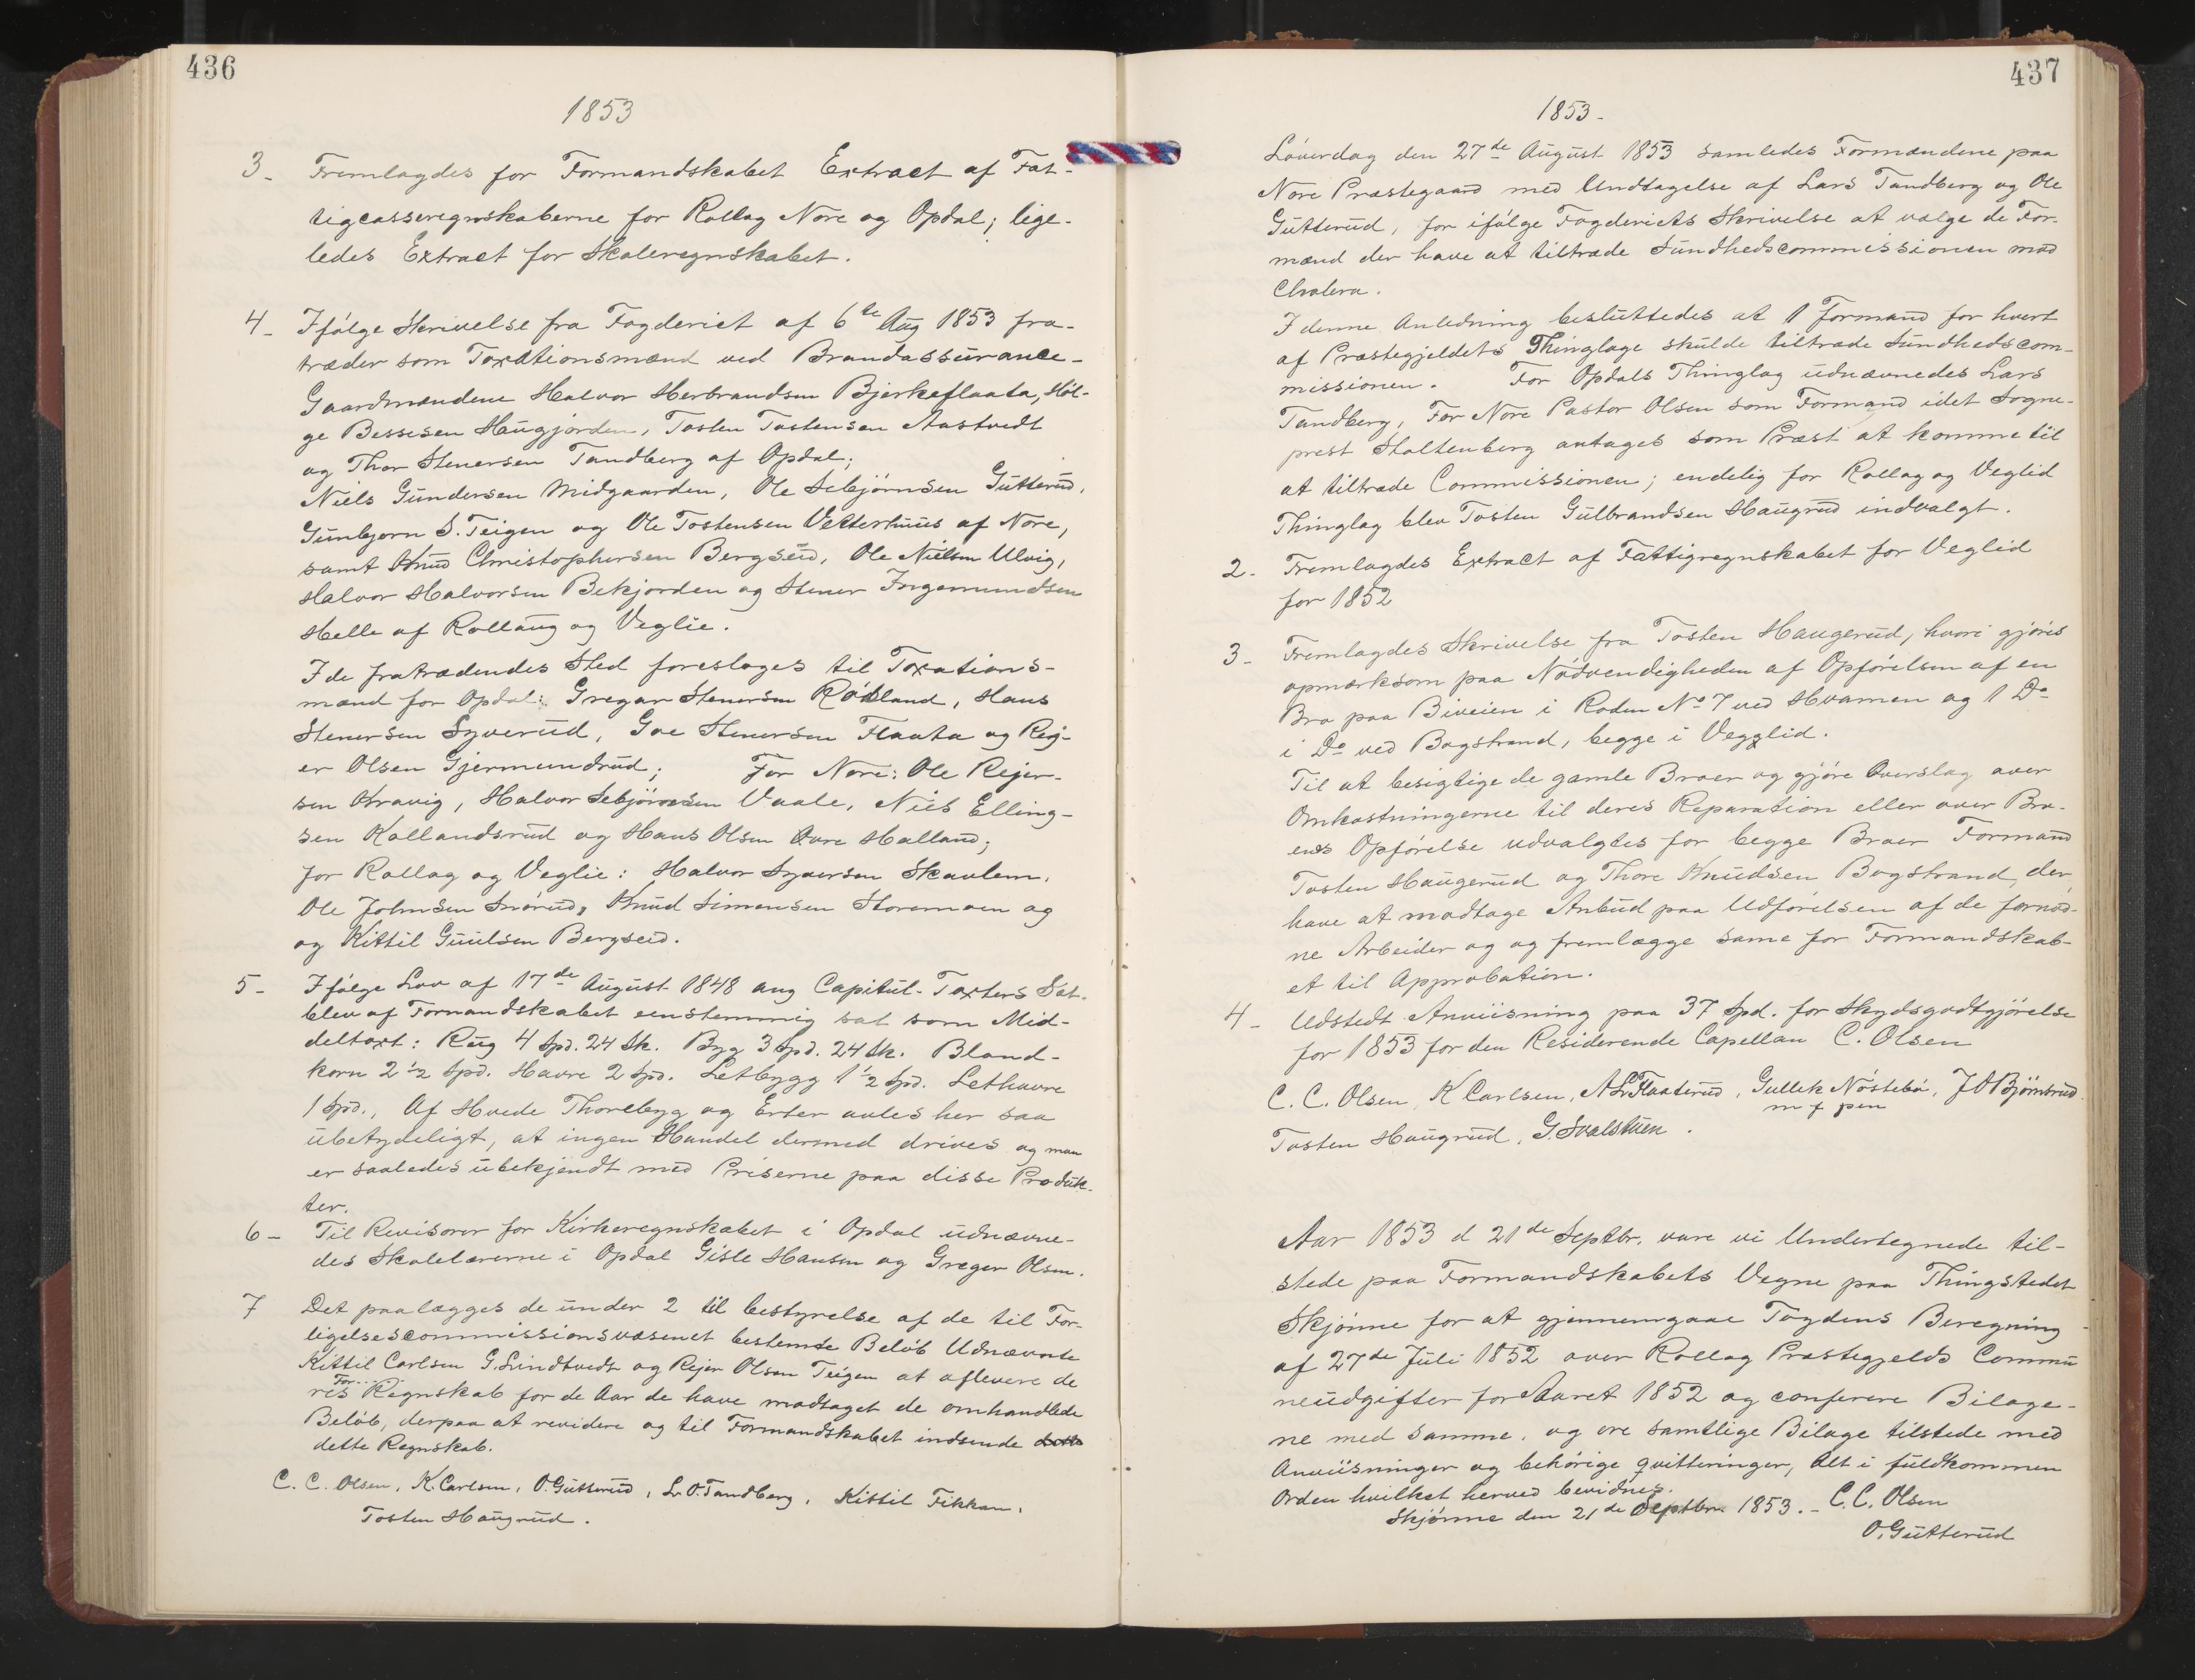 436
1853
3 - Fremlagdes for Formandskabet Extract af Fat-
tigcasseregnskaberne for Rollag Nore og Opdal; lige-
ledes Extract for Skoleregnskabet.
4 - Ifølge Skrivelse fra Fogderiet af 6te Aug 1853 fra-
træder som Taxationsmænd ved Brandassurance-
Gaardmændene Halvor Herbrandsen Bjerkeflaata, Hol-
ge Bessesen Haugjorden, Tosten Tostensen Aastvedt
og Thor Stenersen Tandberg af Opdal;
Niels Gundersen Midgaarden, Ole Sebjørnsen Gutterud,
Gunbjorn S. Teigen og Ole Tostensen Vetterhuus af Nore,
samt Knud Christophersen Bergseid, Ole Nielsen Ulvig,
Halvor Halvorsen Bekjorden og Stener Ingemundsen
Helle af Rollaug og Veglie.
I de fratrædendes Sted foresloges til Taxations-
mænd for Opdal: Gregar Stenersen Rødland, Hans
Stenersen Syverud, Goe Stenersen Flaata og Rej-
er Olsen Gjermundrud; For Nore: Ole Rejer-
sen Kravig, Halvor Sebjørnsen Vaale, Niels Elling-
sen Kollandsrud og Hans Olsen Øvre Halland;
for Rollag og Veglie: Halvor Syversen Skavlem,
Ole Johnsen Snørud, Knud Simensen Storemoen og
og Kittil Guulsen Bergseid.
5 - Ifølge Lov af 17de August 1848 ang Capitul-Taxters Sæt-
blev af Formandskabet eenstemmig sat som Mid-
deltaxt: Rug 4 Spd. 24 Sk. Byg 3 Spd. 24 Sk. Bland-
korn 2 1/2 Spd. Havre 2 Spd. Letbygg 1 1/2 Spd. Lethavre
1 Spd., Af Hvede Thorebyg og Erter avles her saa
ubetydeligt, at ingen Handel dermed drives og man
er saaledes ubekjendt med Priserne paa disse Produk-
ter.
6 - Til Revisorer for Kirkeregnskabet i Opdal udnævne-
des Skolelærerne i Opdal Gisle Hansen og Greger Olsen.
7 Det paalægges de under 2 til bestyrelse af de til For-
ligelsescommissionsvæsenet bestemte Beløb Udnævnte
Kittil Carlsen G. Lindtvedt og Rejer Olsen Teigen at aflevere de
For....
res Regnskab for de Aar de have modtaget de omhandlede
Beløb, derpaa at revidere og til Formandskabet indsende dette
dette Regnskab.
C. C. Olsen, K. Carlsen, O. Gutterud, L. O. Tandberg, Kittil Fikkan,
Tosten Haugrud.
437
1853-
Løverdag den 27de August 1853 samledes Formændene paa
Nore Præstegaard med Undtagelse af Lars Tandberg og Ole
Gutterud, for ifølge Fogderiets Skrivelse at vælge de For-
mænd der have at tiltræde Sundhedscommissionen mod
Cholera.
I denne Anledning besluttedes at 1 Formand for hvert
af Præstegjeldets Thinglage skulde tiltræde Sundhedscom-
missionen. For Opdals Thinglag udnævnedes Lars
Tandberg, For Nore Pastor Olsen som Formand idet Sogne-
prest Stoltenberg antages som Præst at komme til
at tiltræde Commissionen; endelig for Rollag og Veglid
Thinglag blev Tosten Gulbrandsen Haugrud indvalgt.
2 - Fremlagdes Extract af Fattigregnskabet for Veglid
for 1852
3 - Fremlagdes Skrivelse fra Tosten Haugerud, hvori gjøres
opmærksom paa Nødvendigheden af Opførelsen af en
Bro paa Biveien i Roden No 7 ved Hvamen og 1 Do
i Do ved Bogstrand, begge i Vegglid.
Til at besigtige de gamle Broer og gjøre Overslag over
Omkostningerne til deres Reparation eller over Bro-
ens Opførelse udvalgtes for begge Broer Formand
Tosten Haugerud og Thore Knudsen Bogstrand, der
have at modtage Anbud paa Udførelsen af de fornød-
ne Arbeider og og fremlægge same for Formandskab-
et til Approbation.
4 - Udstedt Anviisning paa 37 Spd. for Skydsgodtgjørelse
for 1853 for den Residerende Capellan C. Olsen
C. C. Olsen, K Carlsen, A L Flaaterud, Gullek Nøstebø, J O Bjørnsrud
m f pen
Tosten Haugrud, G. Svalstuen.
Aar 1853 d 21de Septbr. vare vi Undertegnede til-
stede paa Formandskabets Vegne paa Thingstedet
Skjønne for at gjennemgaae Fogdens Beregning
af 27de Juli 1852 over Rollag Præstegjelds Commu
neudgifter for Aaret 1852 og conferere Bilage-
ne med samme, og ere samtlige Bilage tilstede med
Anviisninger og behørige qvitteringer, Alt i fuldkommen
Orden hvilket herved bevidnes.
Skjønne den 21de Septbr. 1853. - C. C. Olsen
O. Gutterud